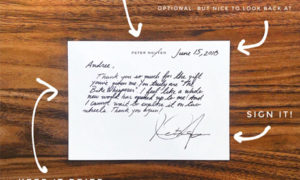 OPTIONAL, BUT NICE TO LOOK BACK AT
PETER NGUYEN
June 15, 2018
Andree,
Thank you so much for the gift
you've given me. You truly are "The
Bike Whisperer". I feel like a whole
new world has opened up to me! And
I cannot wait to explore it on two-
wheels. Thank you again!
SIGN IT!